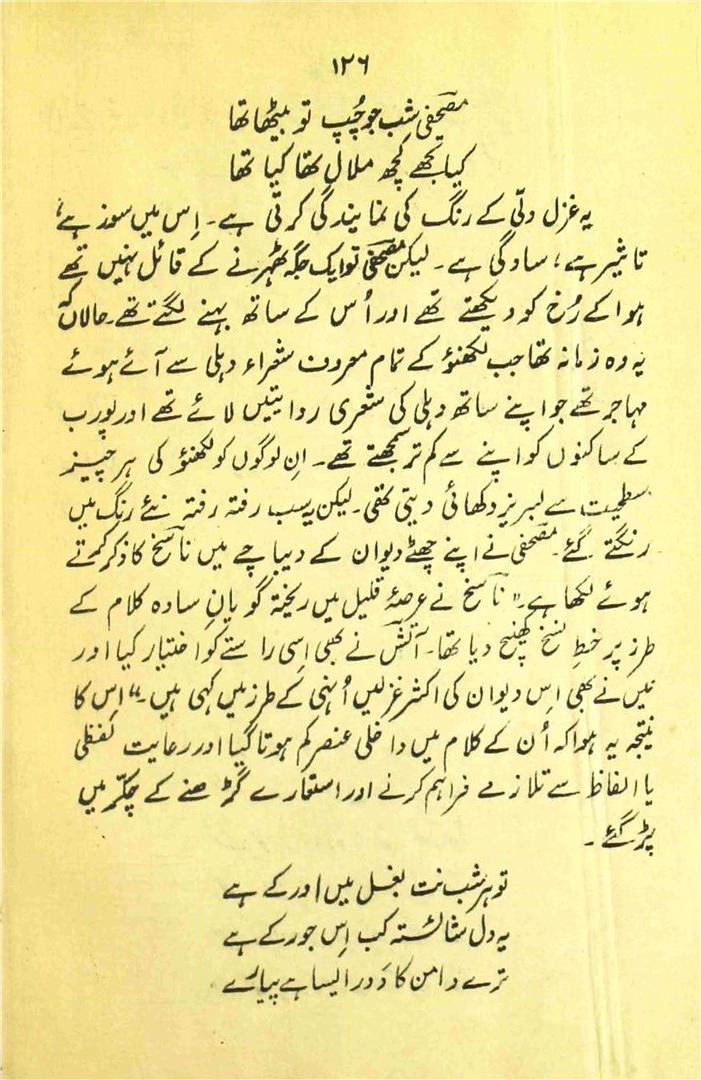 ۱۲۶
مصحفیؔ شب جو چُپ تو بیٹھا تھا
کیا تجھے کچھ ملال تھا کیا تھا
یہ غزل دلّی کے رنگ کی نمایندگی کرتی ہے۔ اِس میں سوز ہے،
تاثیر ہے، سادگی ہے۔ لیکن مصحفیؔ تو ایک جگہ ٹھہرنے کے قائل نہیں تھے
ہوا کے رُخ کو دیکھتے تھے اور اُس کے ساتھ بہنے لگتے تھے۔ حالاں کہ
یہ وہ زمانہ تھا جب لکھنؤ کے تمام معروف شعراء دہلی سے آئے ہوئے
مہاجر تھے جو اپنے ساتھ دہلی کی شعری روایتیں لائے تھے اور پورب
کے ساکنوں کو اپنے سے کم تر سمجھتے تھے۔ اِن لوگوں کو لکھنؤ کی ہر چیز
سطحیت سے لبریز دکھائی دیتی تھی۔ لیکن یہ سب رفتہ رفتہ نئے رنگ میں
رنگتے گئے۔ مصحفیؔ نے اپنے چھٹے دیوان کے دیباچے میں ناسخؔ کا ذکر کرتے
ہوئے لکھا ہے۔ "ناسخؔ نے عرصۂ قلیل میں ریختہ گویانِ سادہ کلام کے
طرز پر خطِ نسخ کھینچ دیا تھا۔ آتشؔ نے بھی اِسی راستے کو اختیار کیا اور
میں نے بھی اس دیوان کی اکثر غزلیں اُنہی کے طرز میں کہی ہیں۔" اِس کا
نتیجہ یہ ہوا کہ اُن کے کلام میں داخلی عنصر کم ہوتا گیا اور رعایت لفظی
یا الفاظ سے تلازمے فراہم کرنے اور استعارے گڑھنے کے چکّر میں
پڑ گئے۔
تو ہر شب نت بغل میں اور کے ہے
یہ دل شائستہ کب اِس جور کے ہے
ترے دامن کا دَور ایسا ہے پیارے